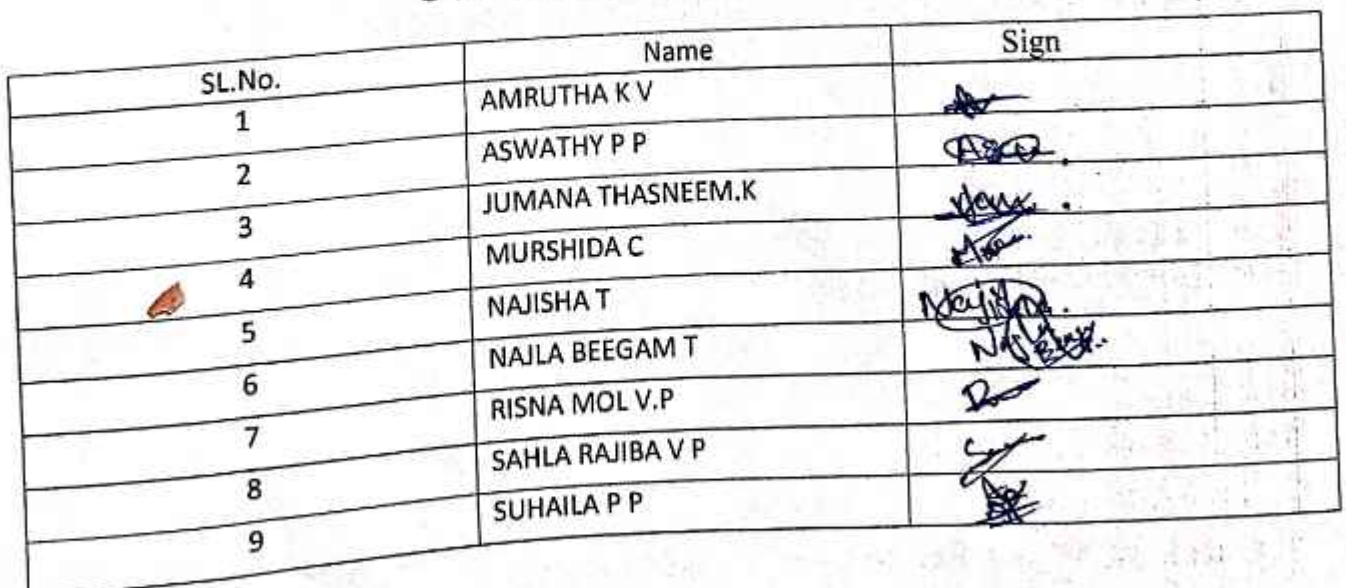 SL.No. Name Sign
1 AMRUTHA K V
2 ASWATHY P P
3 JUMANA THASNEEM.K
4 MURSHIDA C
5 NAJISHA T Najisha.
6 NAJLA BEEGAM T
7 RISNA MOL V.P
8 SAHLA RAJIBA V P
9 SUHAILA P P